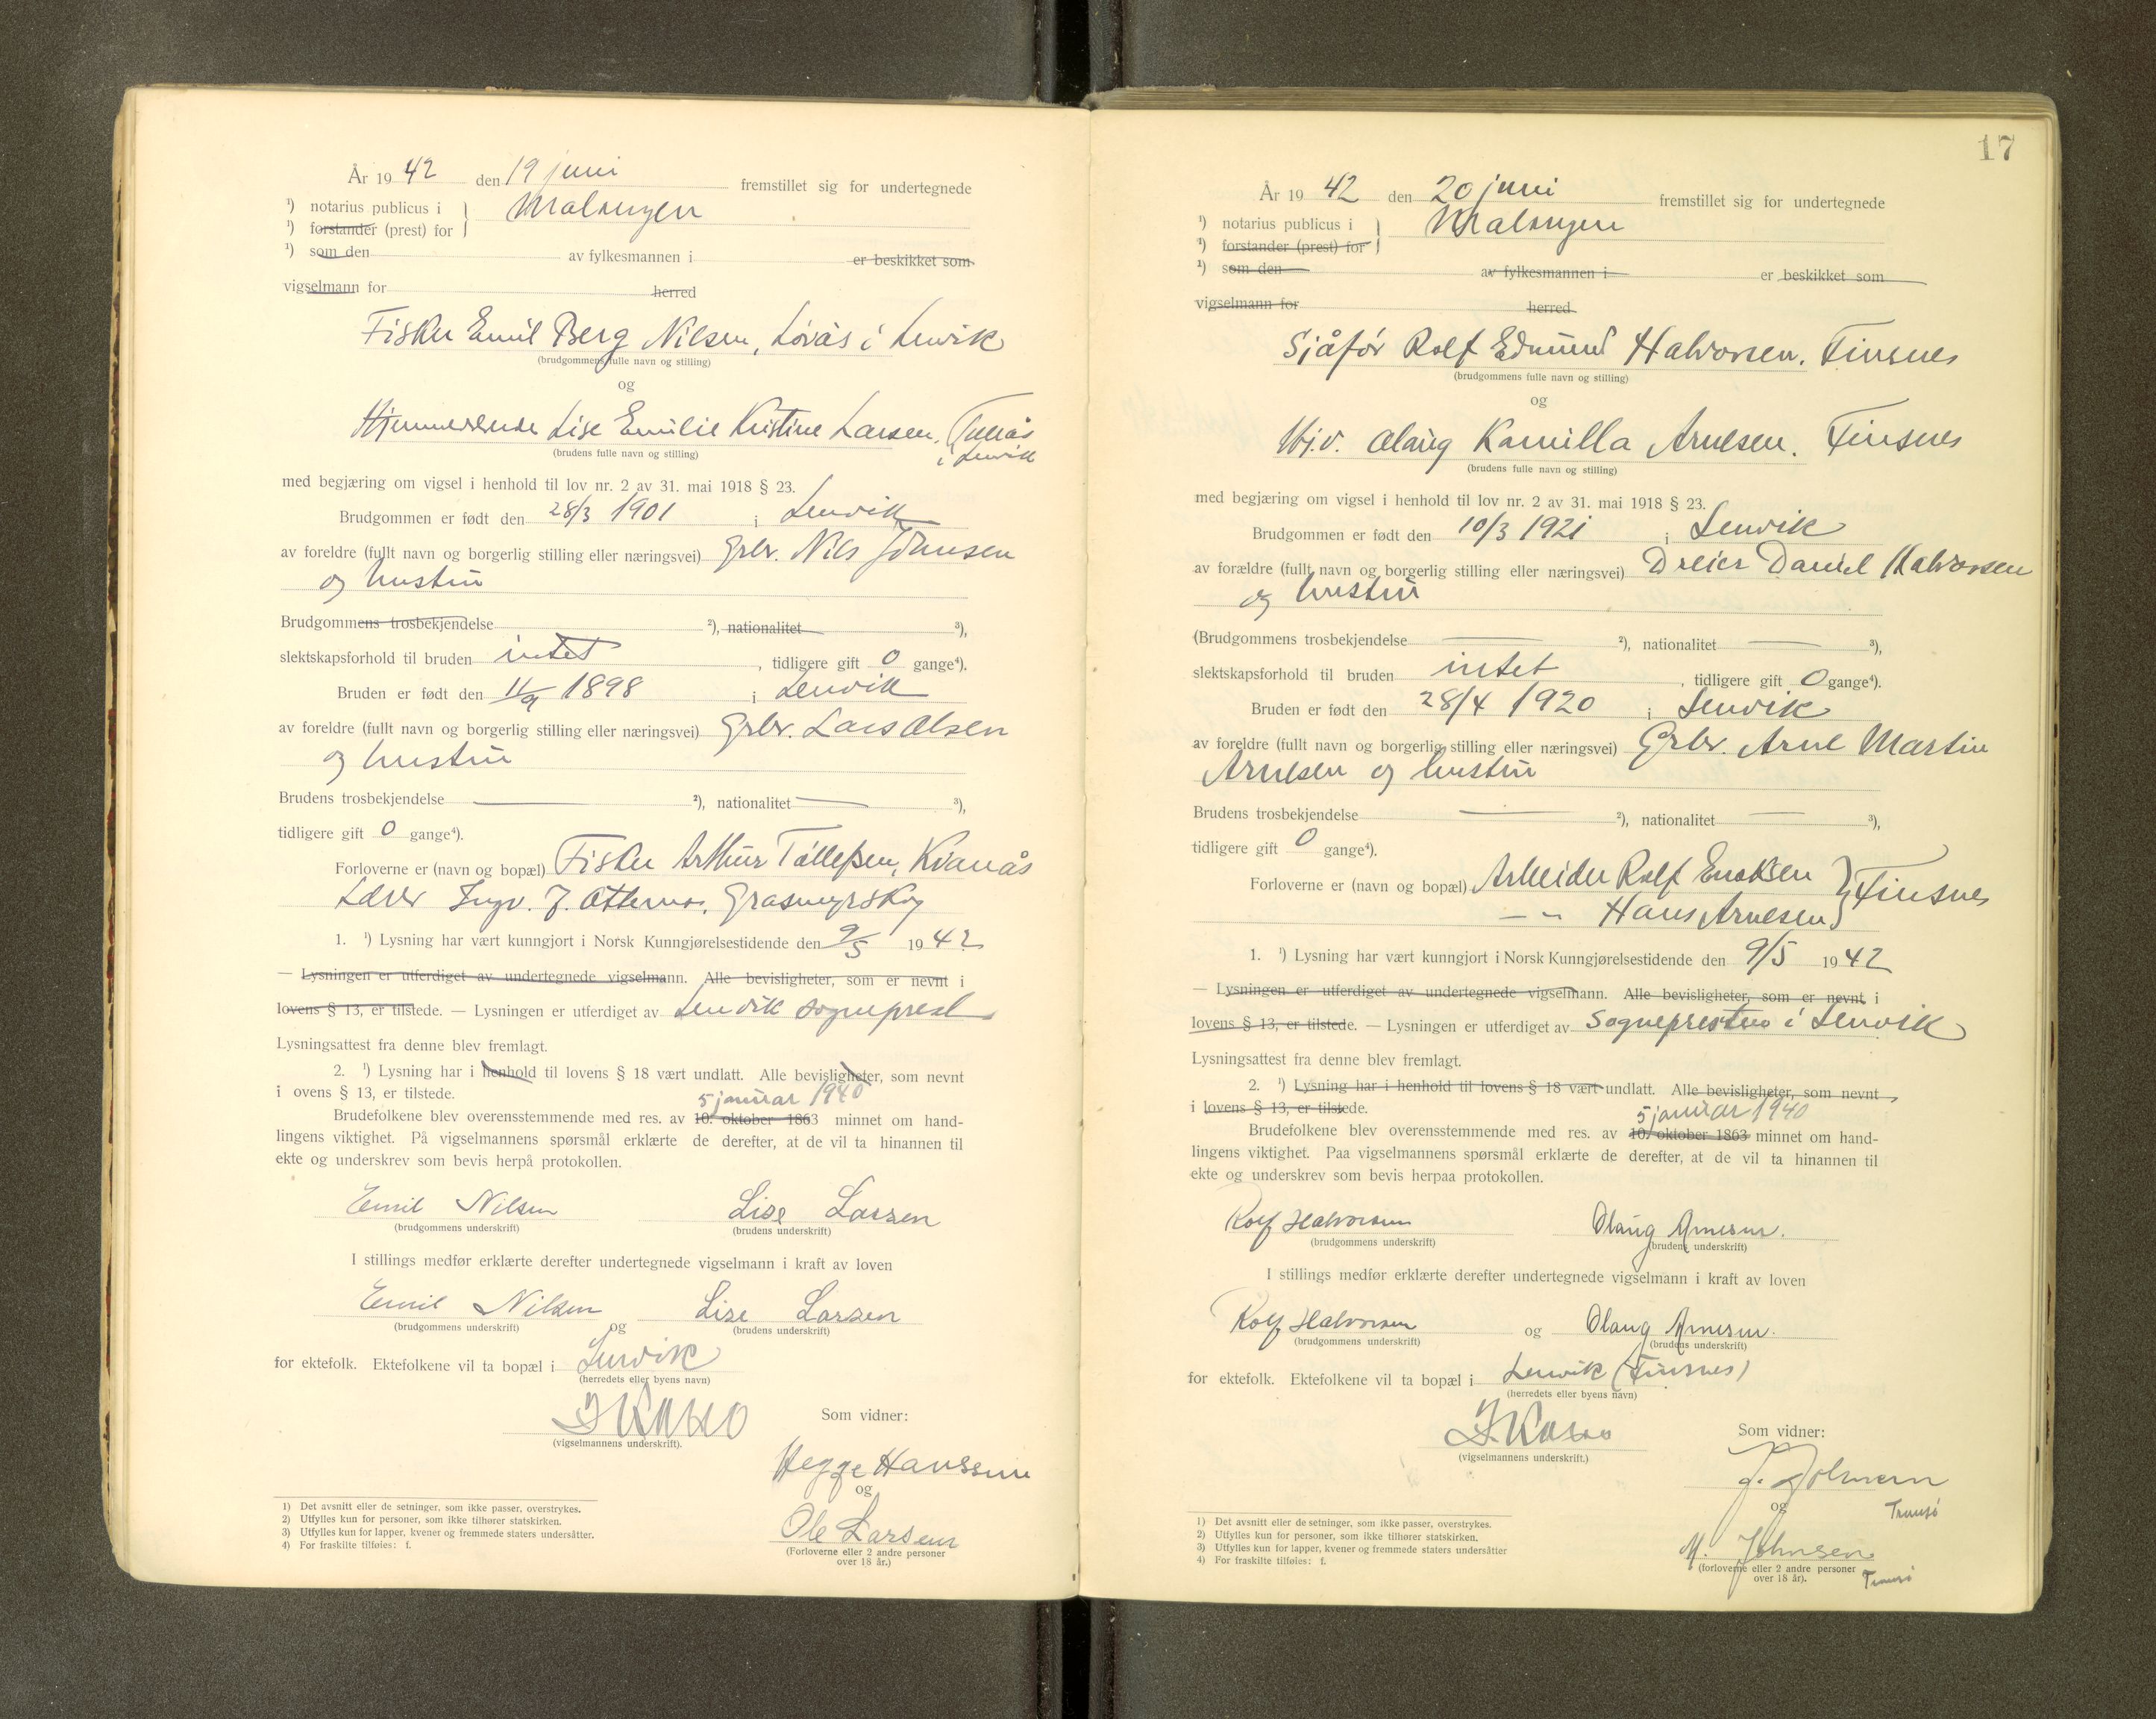 År 1942 den 19 juni fremstillet sig for undertegnede
¹) notarius publicus i } Malangen
¹) forstander (prest) for
¹) som den av fylkesmannen i er beskikket som
vigselmann for herred
Fisker Emil Berg Nilsen, Løvås i Lenvik
(brudgommens fulle navn og stilling)
og
Hjemmeværende Lise Emilie Kristine Larsen,
i Lenvik
(brudens fulle navn og stilling)
med begjæring om vigsel i henhold til lov nr. 2 av 31. mai 1918 § 23.
Brudgommen er født den 28/3 1901 i Lenvik
av foreldre (fullt navn og borgerlig stilling eller næringsvei) Grbr. Nils Johnsen
og hustru
Brudgommens trosbekjendelse ²), nationalitet ³),
slektskapsforhold til bruden intet, tidligere gift 0 gange⁴).
Bruden er født den 11/9 1898 i Lenvik
av foreldre (fullt navn og borgerlig stilling eller næringsvei) Grbr. Lars Olsen
og hustru
Brudens trosbekjendelse — ²), nationalitet — ³),
tidligere gift 0 gange⁴).
Forloverne er (navn og bopæl) Fisker Arthur Tollefsen, Kvanås
Lærer Ingv. J. Grasmyrskog
1. ¹) Lysning har vært kunngjort i Norsk Kunngjørelsestidende den 9/5 1942
— Lysningen er utferdiget av undertegnede vigselmann. Alle bevisligheter, som er nevnt i
lovens § 13, er tilstede. — Lysningen er utferdiget av Lenvik sogneprest
Lysningsattest fra denne blev fremlagt.
2. ¹) Lysning har i henhold til lovens § 18 vært undlatt. Alle bevisligheter, som nevnt
i ovens § 13, er tilstede.
5 januar 1940
Brudefolkene blev overensstemmende med res. av 10. oktober 1863 minnet om hand-
lingens viktighet. På vigselmannens spørsmål erklærte de derefter, at de vil ta hinannen til
ekte og underskrev som bevis herpå protokollen.
Emil Nilsen Lise Larsen
(brudgommens underskrift) (brudens underskrift)
I stillings medfør erklærte derefter undertegnede vigselmann i kraft av loven
Emil Nilsen og Lise Larsen
(brudgommens underskrift) (brudens underskrift)
for ektefolk. Ektefolkene vil ta bopæl i Lenvik
(herredets eller byens navn)
(vigselmannens underskrift).
Som vidner:
Hegge Hanssen
og
Ole Larsen
(Forloverne eller 2 andre personer
over 18 år.)
1) Det avsnitt eller de setninger, som ikke passer, overstrykes.
2) Utfylles kun for personer, som ikke tilhører statskirken.
3) Utfylles kun for lapper, kvener og fremmede staters undersåtter.
4) For fraskilte tilføies: f.
17
År 1942 den 20 juni fremstillet sig for undertegnede
¹) notarius publicus i } Malangen
¹) forstander (prest) for
¹) som den av fylkesmannen i er beskikket som
vigselmann for herred
Sjåfør Rolf Edmund Halvorsen. Finsnes
(brudgommens fulle navn og stilling)
og
Hj.v. Olaug Kamilla Arnesen. Finsnes
(brudens fulle navn og stilling)
med begjæring om vigsel i henhold til lov nr. 2 av 31. mai 1918 § 23.
Brudgommen er født den 10/3 1921 i Lenvik
av forældre (fullt navn og borgerlig stilling eller næringsvei) Dreier Daniel Halvorsen
og hustru
(Brudgommens trosbekjendelse — ²), nationalitet — ³),
slektskapsforhold til bruden intet, tidligere gift 0 gange⁴).
Bruden er født den 28/4 1920 i Lenvik
av foreldre (fullt navn og borgerlig stilling eller næringsvei) Grbr. Arne Martin
Arnesen og hustru
Brudens trosbekjendelse — ²), nationalitet — ³),
tidligere gift 0 gange⁴).
Forloverne er (navn og bopæl) Arbeider Rolf Enoksen } Finsnes
— " — Hans Arnesen
1. ¹) Lysning har vært kunngjort i Norsk Kunngjørelsestidende den 9/5 1942
— Lysningen er utferdiget av undertegnede vigselmann. Alle bevisligheter, som er nevnt i
lovens § 13, er tilstede. — Lysningen er utferdiget av Sognepresten i Lenvik
Lysningsattest fra denne blev fremlagt.
2. ¹) Lysning har i henhold til lovens § 18 vært undlatt. Alle bevisligheter, som nevnt
i lovens § 13, er tilstede.
5 januar 1940
Brudefolkene blev overensstemmende med res. av 10. oktober 1863 minnet om hand-
lingens viktighet. Paa vigselmannens spørsmål erklærte de derefter, at de vil ta hinannen til
ekte og underskrev som bevis herpaa protokollen.
Rolf Halvorsen Olaug Arnesen.
(brudgommens underskrift) (brudens underskrift)
I stillings medfør erklærte derefter undertegnede vigselmann i kraft av loven
Rolf Halvorsen og Olaug Arnesen.
(brudgommens underskrift) (brudens underskrift)
for ektefolk. Ektefolkene vil ta bopæl i Lenvik (Finsnes)
(herredets eller byens navn)
(vigselmannens underskrift.)
Som vidner:
og Tromsø
M. Johnsen
(forloverne eller 2 andre personer
over 18 år). Tromsø
1) Det avsnitt eller de setninger, som ikke passer, overstrykes.
2) Utfylles kun for personer, som ikke tilhører statskirken.
3) Utfylles kun for lapper, kvener og fremmede staters undersåtter
4) For fraskilte tilføies: f.